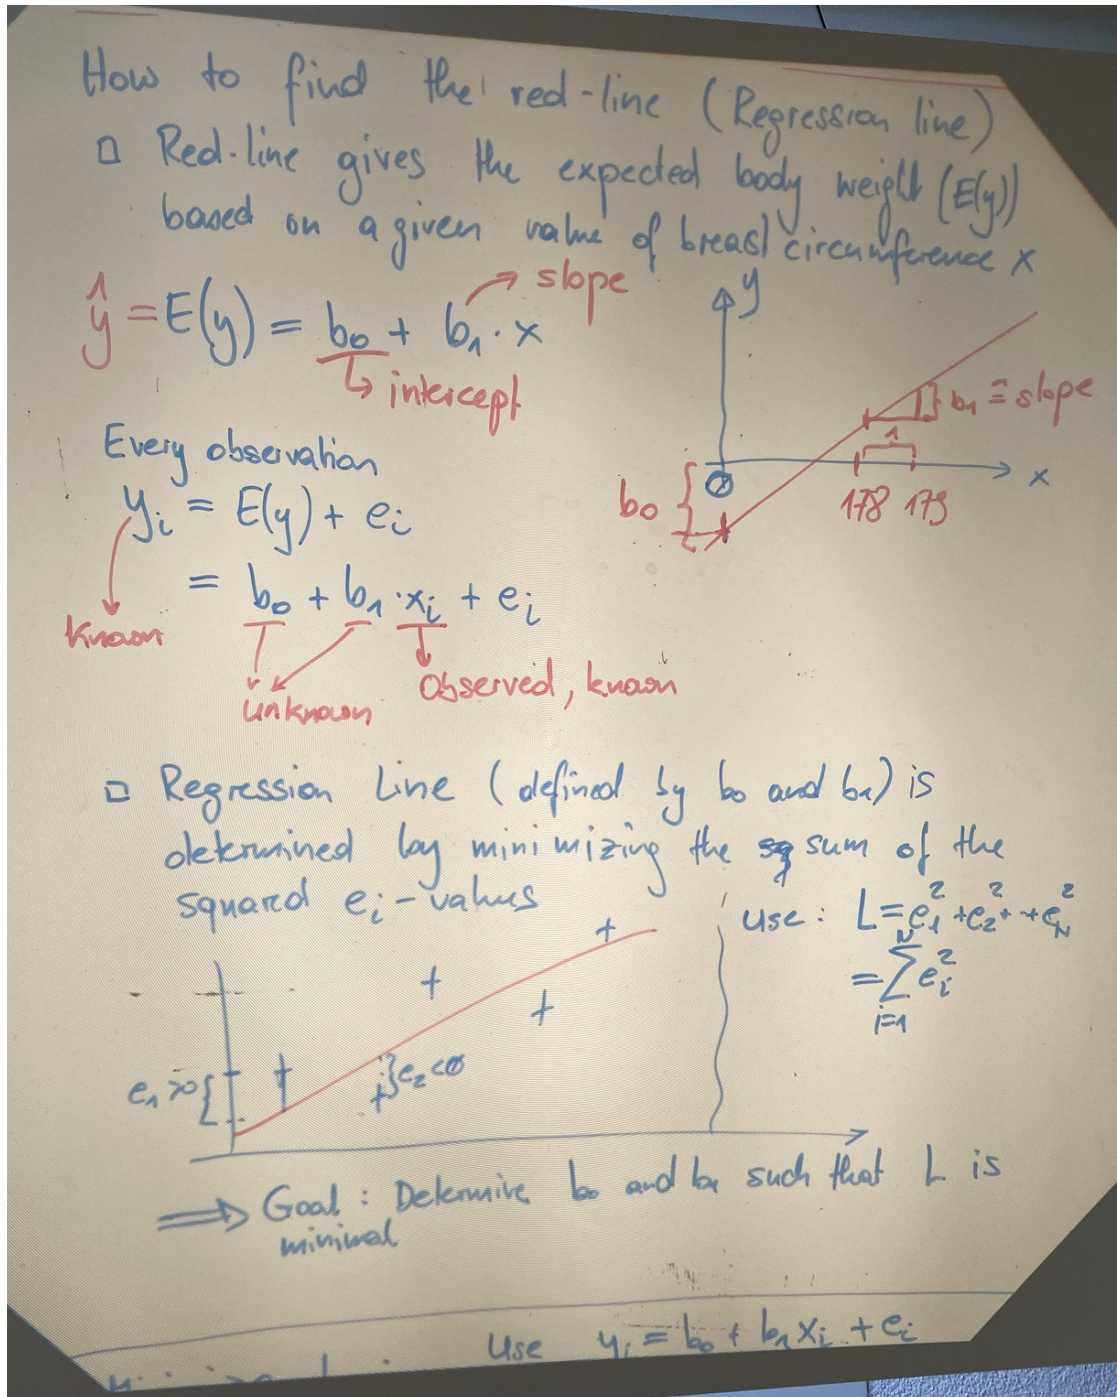 How to find the red-line (Regression line)
□ Red-line gives the expected body weight (E(y))
based on a given value of breast circumference x
ŷ = E(y) = b₀ + b₁ · x
slope
intercept
y
b₁ ≙ slope
1
x
0
b₀
178 179
Every observation
yᵢ = E(y) + eᵢ
= b₀ + b₁ · xᵢ + eᵢ
known
unknown
Observed, known
□ Regression Line (defined by b₀ and b₁) is
determined by minimizing the sq sum of the
squared eᵢ-values
use: L = e₁² + e₂² + + e_N²
= ∑ᵢ₌₁ᴺ eᵢ²
e₁ >0
e₂ <0
⇒ Goal: Determine b₀ and b₁ such that L is
minimal
Use yᵢ = b₀ + b₁ xᵢ + eᵢ